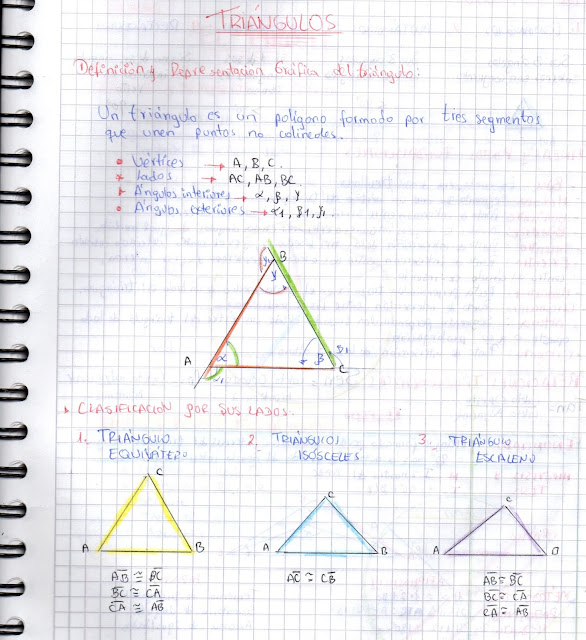 TRIÁNGULOS
Definición y Representación Gráfica del triángulo:
Un triángulo es un polígono formado por tres segmentos
que unen puntos no colineales.
Vértices → A, B, C.
Lados → AC, AB, BC
Ángulos interiores → α, β, γ
Ángulos exteriores → α1, β1, γ1.
B
γ1
γ
A
α
α1
β
β1
C
CLASIFICACIÓN POR SUS LADOS.
1. TRIÁNGULO EQUILÁTERO
2. TRIÁNGULOS ISÓSCELES
3. TRIÁNGULO ESCALENO
C
A
B
C
A
B
C
A
AB ≅ BC
BC ≅ CA
CA ≅ AB
AC ≅ CB
AB ≅ BC
BC ≅ CA
CA ≅ AB